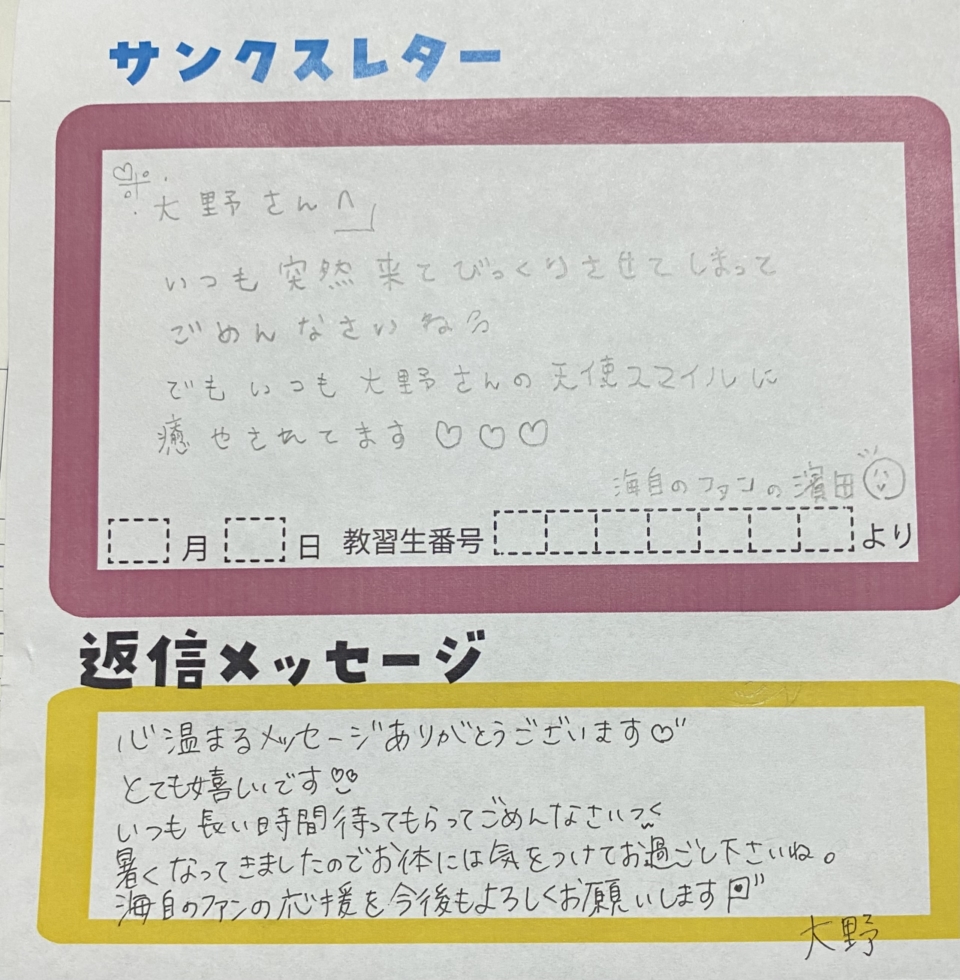 サンクスレター
大野さんへ
いつも突然来てびっくりさせてしまって
ごめんなさいね
でもいつも大野さんの天使スマイルに
癒やされてます♡♡♡
海自のファンの濱田
月 日 教習生番号 より
返信メッセージ
心温まるメッセージありがとうございます♡
とても嬉しいです
いつも長い時間待ってもらってごめんなさい
暑くなってきましたのでお体には気をつけてお過ごし下さいね。
海自のファンの応援を今後もよろしくお願いします
大野